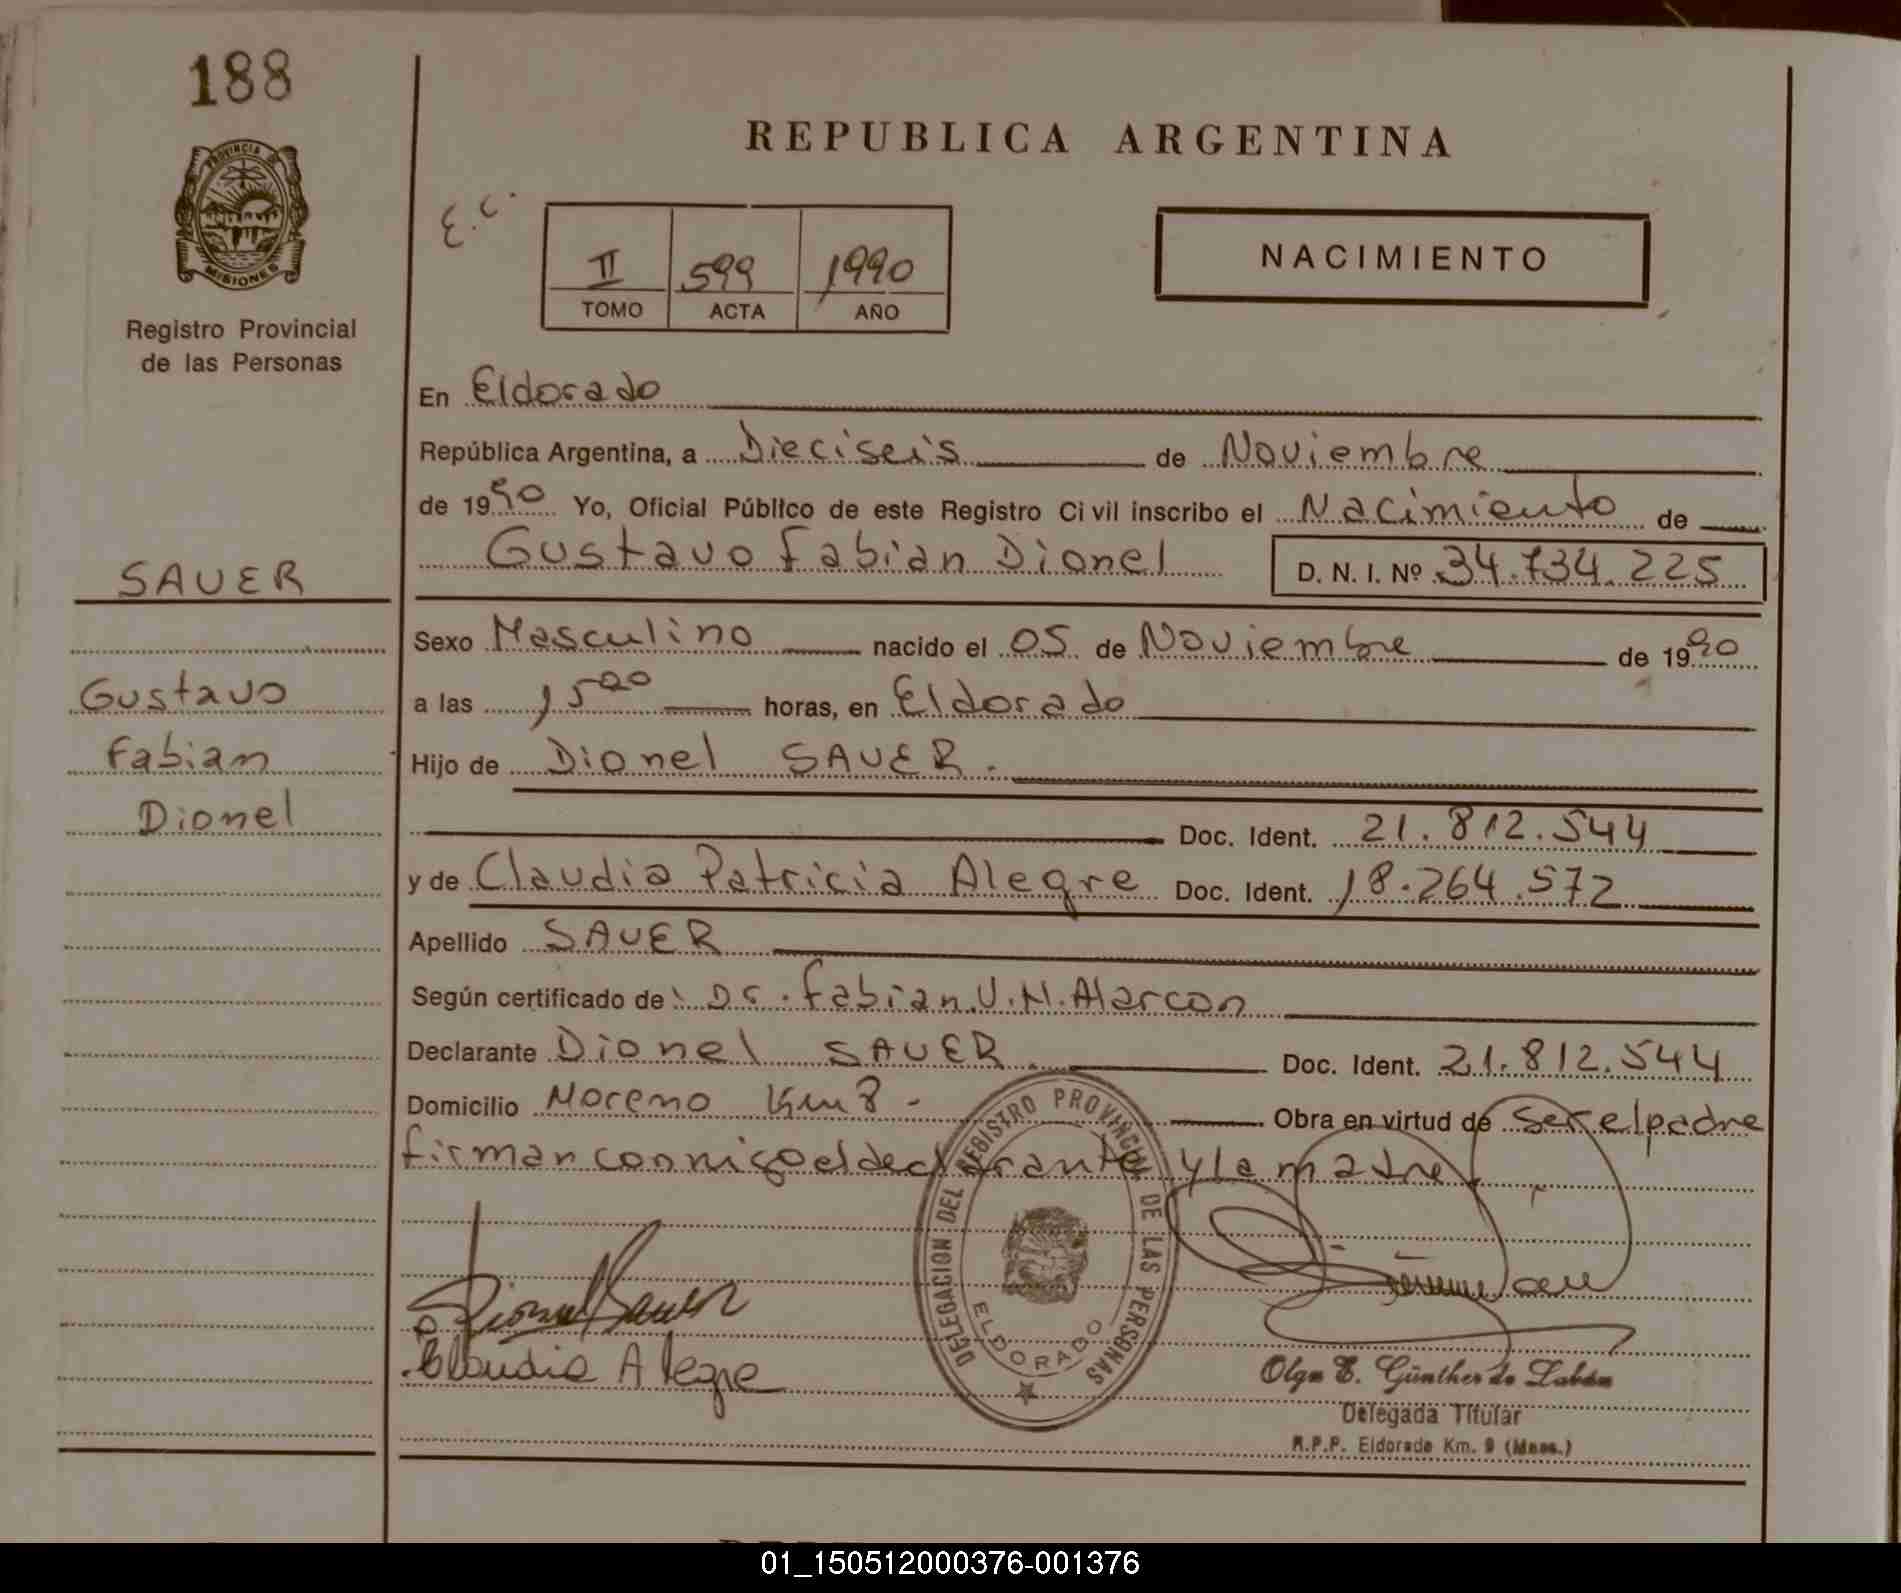 188
PROVINCIA DE
MISIONES
Registro Provincial
de las Personas
REPUBLICA ARGENTINA
E.C.
II 599 1990
TOMO ACTA AÑO
NACIMIENTO
En Eldorado
República Argentina, a Dieciseis de Noviembre
de 1990 Yo, Oficial Público de este Registro Civil inscribo el Nacimiento de
Gustavo Fabian Dionel D. N. I. Nº 34.734.225
SAUER
Gustavo
Fabian
Dionel
Sexo Masculino nacido el 05 de Noviembre de 1990
a las 15 00 horas, en Eldorado
Hijo de Dionel SAUER.
Doc. Ident. 21.812.544
y de Claudia Patricia Alegre Doc. Ident. 18.264.572
Apellido SAUER
Según certificado de: Dr. Fabian U. N. Alarcon
Declarante Dionel SAUER. Doc. Ident. 21.812.544
Domicilio Moreno Km 8 - Obra en virtud de ser el padre
firman conmigo el declarante y la madre.
DELEGACION DEL REGISTRO PROVINCIAL DE LAS PERSONAS
ELDORADO
Dionel Sauer
Claudia Alegre
Olga E. Günther de Labán
Delegada Titular
R.P.P. Eldorado Km. 9 (Mnes.)
01_150512000376-001376